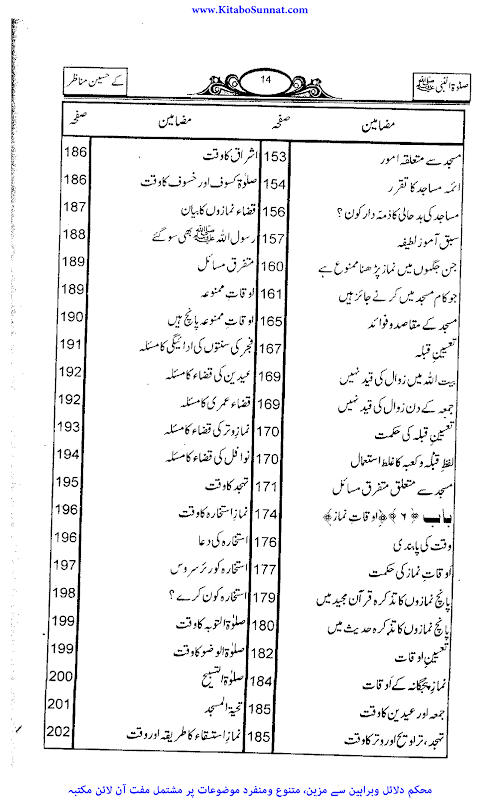 www.KitaboSunnat.com
صلوٰۃ النبی ﷺ
14
کے حسین مناظر
مضامین صفحہ
مسجد سے متعلقہ امور 153
ائمہ مساجد کا تقرر 154
مساجد کی بدحالی کا ذمہ دار کون؟ 156
سبق آموز لطیفہ 157
جن جگہوں میں نماز پڑھنا ممنوع ہے 160
جو کام مسجد میں کرنے جائز ہیں 161
مسجد کے مقاصد و فوائد 165
تعیینِ قبلہ 167
بیت اللہ میں زوال کی قید نہیں 169
جمعہ کے دن زوال کی قید نہیں 169
تعیینِ قبلہ کی حکمت 170
لفظِ قبلہ و کعبہ کا غلط استعمال 170
مسجد سے متعلق متفرق مسائل 171
باب ﴿۶﴾ ﴿اوقاتِ نماز﴾ 174
وقت کی پابندی 176
اوقاتِ نماز کی حکمت 177
پانچ نمازوں کا تذکرہ قرآن مجید میں 179
پانچ نمازوں کا تذکرہ حدیث میں 180
تعیینِ اوقات 182
نمازِ پنجگانہ کے اوقات 184
جمعہ اور عیدین کا وقت 185
تہجد، تراویح اور وتر کا وقت 185
مضامین صفحہ
اشراق کا وقت 186
صلوٰۃ کسوف اور خسوف کا وقت 186
قضاء نمازوں کا بیان 187
رسول اللہ ﷺ بھی سو گئے 188
متفرق مسائل 189
اوقاتِ ممنوعہ 189
اوقاتِ ممنوعہ پانچ ہیں 190
فجر کی سنتوں کی ادائیگی کا مسئلہ 191
عیدین کی قضاء کا مسئلہ 192
قضاء عمری کا مسئلہ 192
نمازِ وتر کی قضاء کا مسئلہ 193
نوافل کی قضاء کا مسئلہ 194
تہجد کا وقت 195
نمازِ استخارہ کا وقت 196
استخارہ کی دعا 196
استخارہ کوریئر سروس 197
استخارہ کون کرے؟ 198
صلوٰۃ التوبہ کا وقت 199
صلوٰۃ الوضو کا وقت 199
صلوٰۃ التسبیح 200
تحیۃ المسجد 201
نمازِ استسقاء کا طریقہ اور وقت 202
محکم دلائل وبراہین سے مزین، متنوع ومنفرد موضوعات پر مشتمل مفت آن لائن مکتبہ